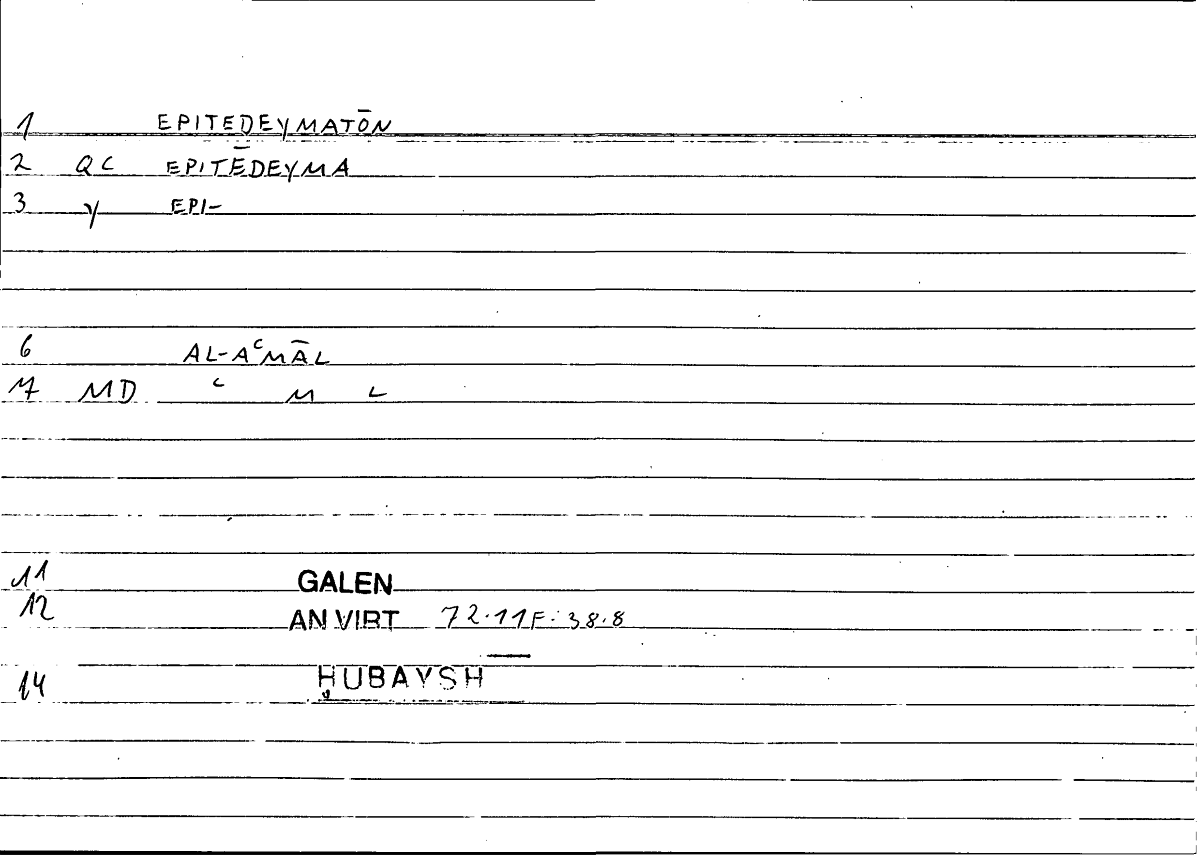 1 EPITEDEYMATŌN
2 QC EPITĒDEYMA
3 Y EPI-
6 AL-AᶜMĀL
7 MD ᶜ M L
11 GALEN
12 AN VIRT 72.11F:38.8
14 ḤUBAYSH